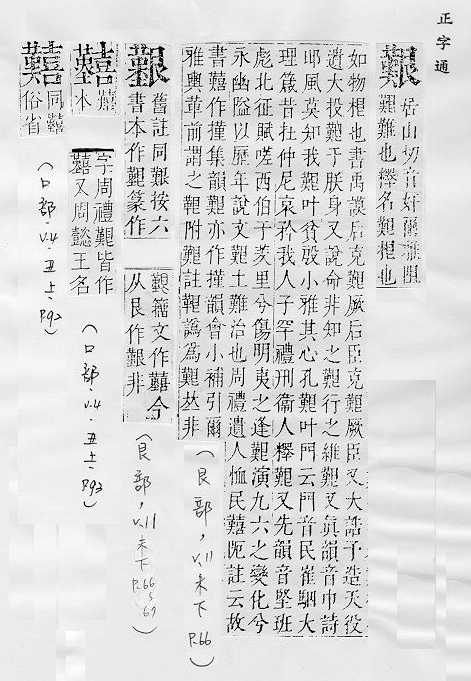 正字通
艱 居山切音奸爾雅阻
艱難也釋名艱根也
如物根也書禹謨后克艱厥后臣克艱厥臣又大誥予造天役
遺大投艱于朕身又說命非知之艱行之維艱又眞韻音巾詩
邶風莫知我艱叶貧殷小雅其心孔艱叶門云門音民崔駰大
理箴昔杜仲尼哀矜我人子罕禮刑衞人釋艱又先韻音堅班
彪北征賦嗟西伯于羑里兮傷明夷之逢艱演九六之變化兮
永幽隘以歷年說文艱土難治也周禮遺人恤民囏阨註云故
書囏作撞集韻艱亦作撞韻會小補引爾
雅輿革前謂之鞎附艱註鞎譌爲艱𠀤非
艱 舊註同艱按六
書本作艱篆作
艱籒文作囏今
从艮作艱非
囏 囏
本
字周禮艱皆作
囏又周懿王名
囏 同囏
俗省
(艮部,V.11未下P.66)
(艮部,V.11未下P.66、67)
(口部.V.4.丑上.P.92)
(口部.V.4.丑上.P.92)